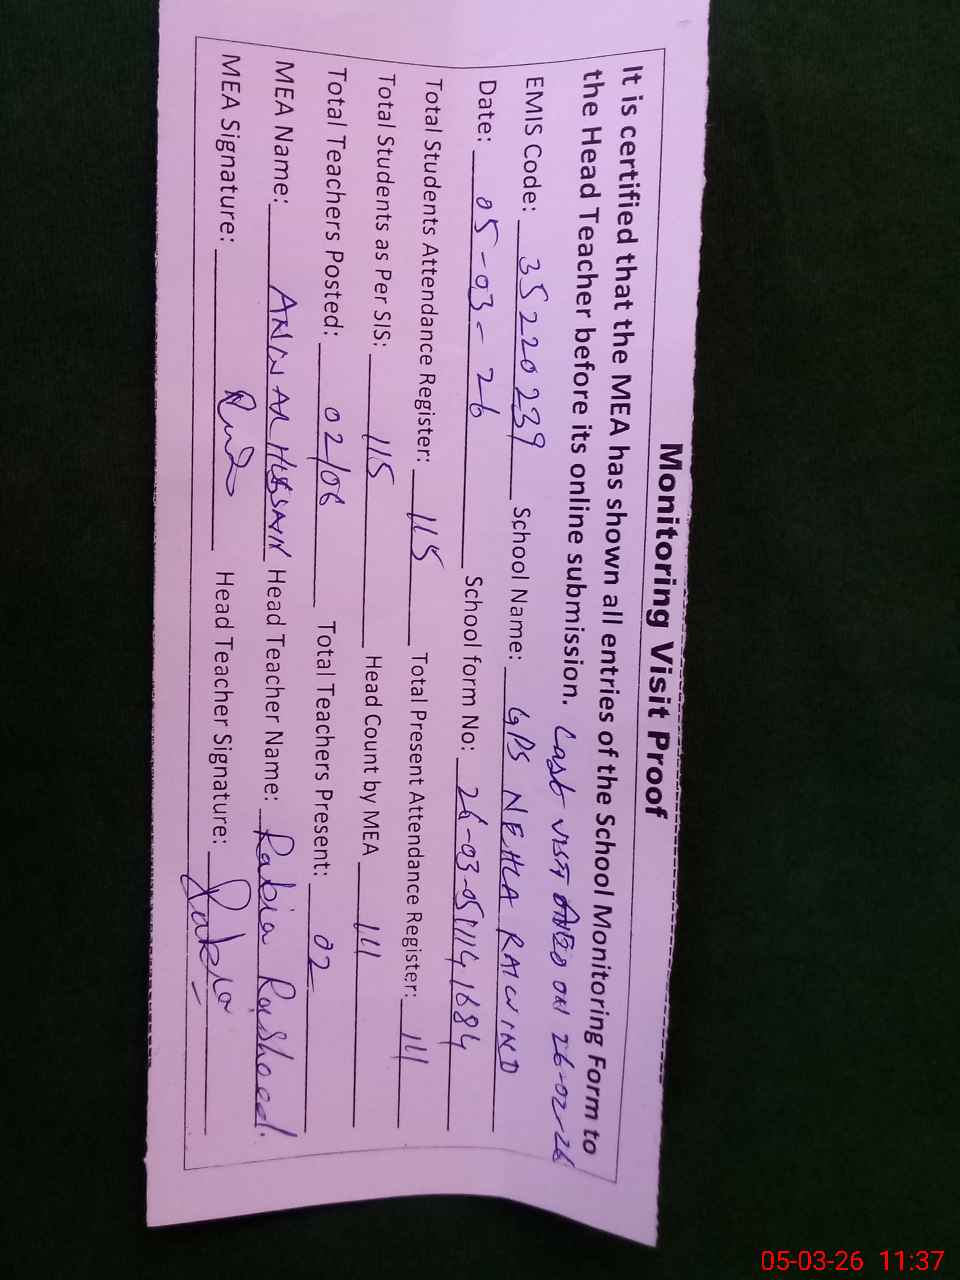 Monitoring Visit Proof
It is certified that the MEA has shown all entries of the School Monitoring Form to
the Head Teacher before its online submission. Last visit on 26-02-26
EMIS Code: 35220239 School Name: GPS NEHLA RAIWIND
Date: 05-03-26 School form No: 26-03-051141684
Total Students Attendance Register: 115 Total Present Attendance Register: 111
Total Students as Per SIS: 115 Head Count by MEA 111
Total Teachers Posted: 02/06 Total Teachers Present: 02
MEA Name: HUSSAIN Head Teacher Name: Rabia Rasheed.
MEA Signature: Head Teacher Signature: Rabia
05-03-26 11:37